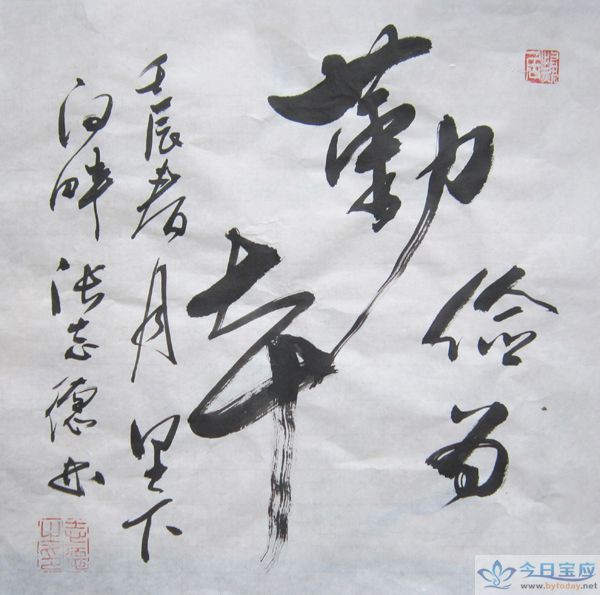 勤俭为
本
壬辰春月里下
河畔张志德书
今日宝应
www.bytoday.net